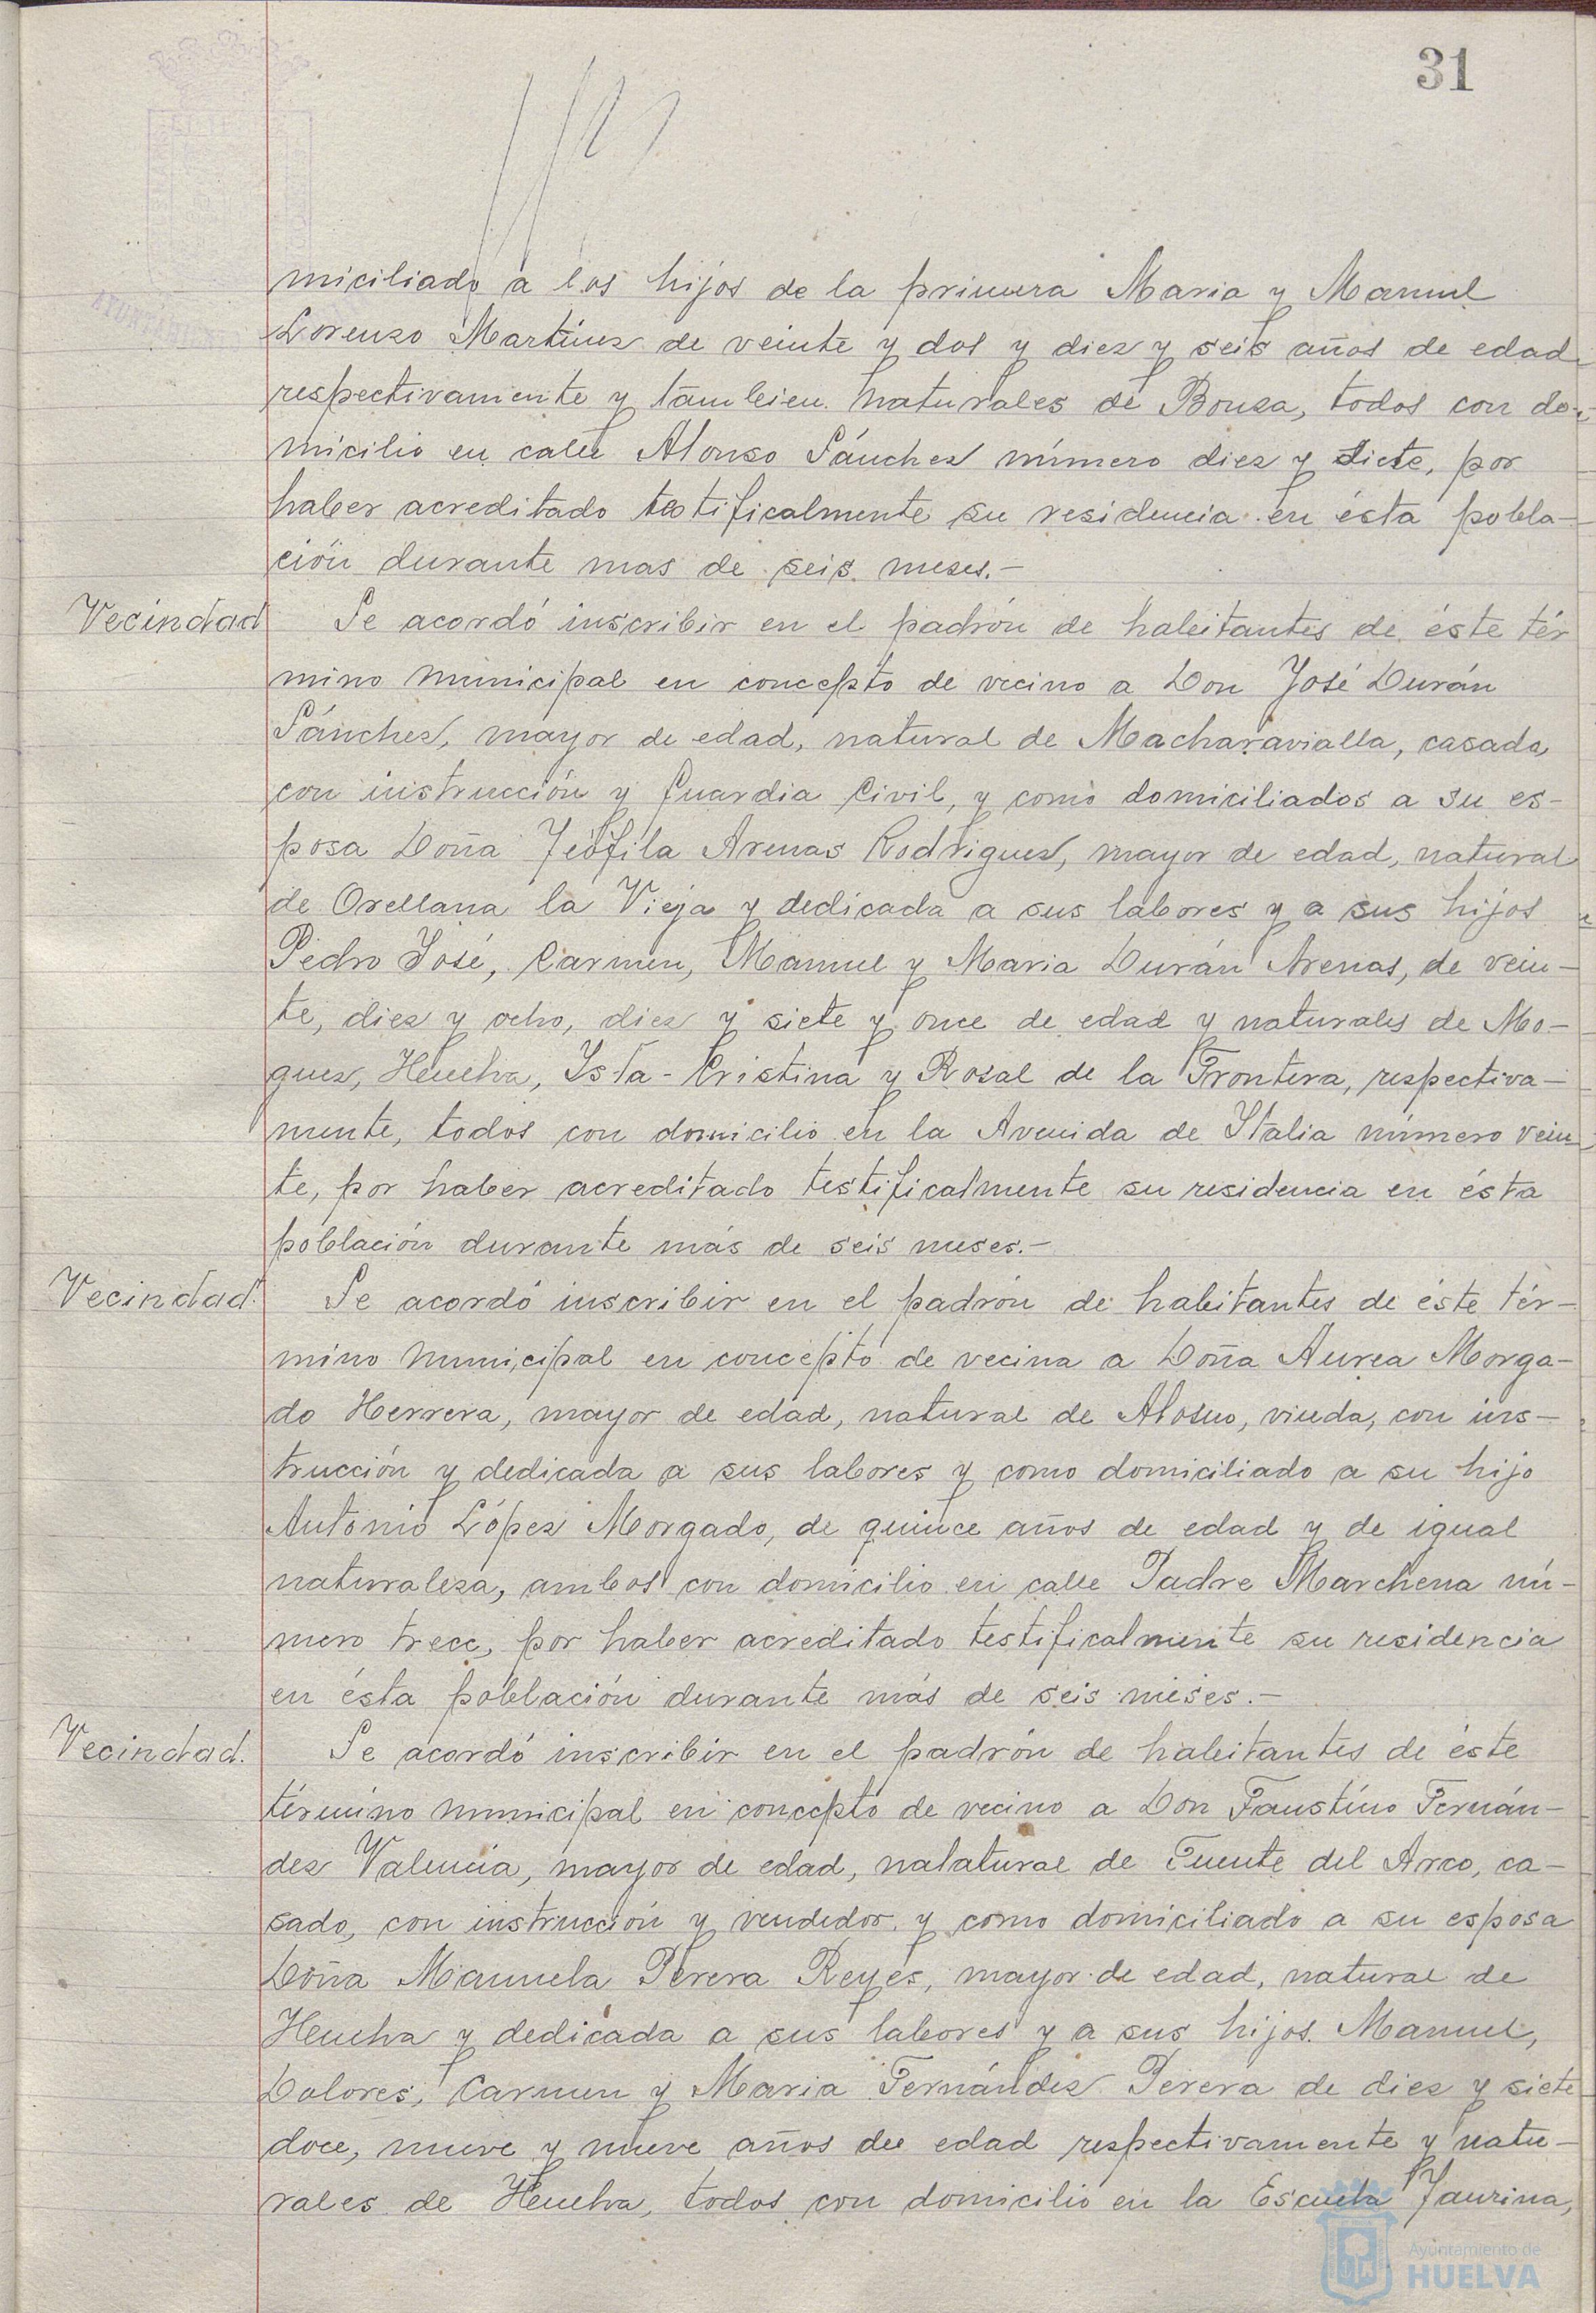 31
miciliado a los hijos de la primera Maria y Manuel
Lorenzo Martínez de veinte y dos y diez y seis años de edad
respectivamente y tambien naturales de Bonza, todos con do-
micilio en calle Alonso Sánchez número diez y siete, por
haber acreditado testificalmente su residencia en ésta pobla-
ción durante mas de seis meses.-
Vecindad Se acordó inscribir en el padrón de habitantes de éste tér
mino municipal en concepto de vecino a Don José Durán
Sánchez, mayor de edad, natural de Macharavialla, casado,
con instrucción y Guardia Civil, y como domiciliados a su es-
posa Doña Teófila Arenas Rodriguez, mayor de edad, natural
de Orellana la Vieja y dedicada a sus labores y a sus hijos
Pedro José, Carmen, Manuel y Maria Durán Arenas, de vein-
te, diez y ocho, diez y siete y once de edad y naturales de Mo-
guer, Huelva, Ysla-Cristina y Rosal de la Frontera, respectiva-
mente, todos con domicilio en la Avenida de Ytalia número vein
te, por haber acreditado testificalmente su residencia en ésta
población durante más de seis meses.-
Vecindad. Se acordó inscribir en el padrón de habitantes de éste tér-
mino municipal en concepto de vecina a Doña Aurea Morga-
do Herrera, mayor de edad, natural de Alosno, viuda, con ins-
trucción y dedicada a sus labores y como domiciliado a su hijo
Antonio López Morgado, de quince años de edad y de igual
naturaleza, ambos con domicilio en calle Padre Marchena nú-
mero trece, por haber acreditado testificalmente su residencia
en ésta población durante más de seis meses.-
Vecindad. Se acordó inscribir en el padrón de habitantes de éste
término municipal en concepto de vecino a Don Faustino Fernán-
dez Valencia, mayor de edad, nalatural de Fuente del Arco, ca-
sado, con instrucción y vendedor y como domiciliado a su esposa
Doña Manuela Perera Reyes, mayor de edad, natural de
Huelva y dedicada a sus labores y a sus hijos Manuel,
Dolores, Carmen y Maria Fernández Perera de diez y siete
doce, nueve y nueve años de edad respectivamente y natu-
rales de Huelva, todos con domicilio en la Escuela Taurina,
Ayuntamiento de
HUELVA